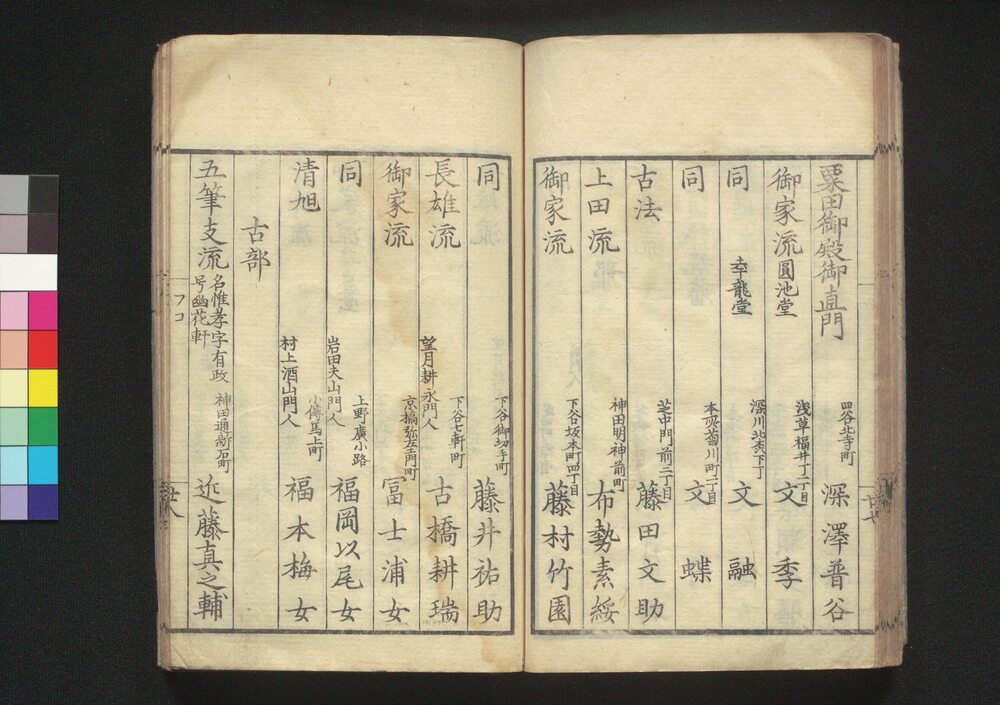 粟田御殿御直門 四谷北寺町 深澤普谷
御家流 圓池堂 浅草福井丁二丁目 文季
同 幸龍堂 深川北六間下丁 文融
同 本所菊川町二丁目 文蝶
古法 芝中門前二丁目 藤田文助
上田流 神田明神前町 布勢素綏
御家流 下谷坂本町四丁目 藤村竹園
廿七
同 下谷御切手町 藤井祐助
長雄流 望月耕永門人 下谷七軒町 古橋耕瑞
御家流 京橋弥左エ門町 冨士浦女
同 岩田夫山門人 上野廣小路 福岡以尾女
清旭 村上酒山門人 小傳馬上町 福本梅女
古部
五筆支流 名惟孝字有政 号幽花軒 神田通新石町 近藤真之輔
フコ
廿八